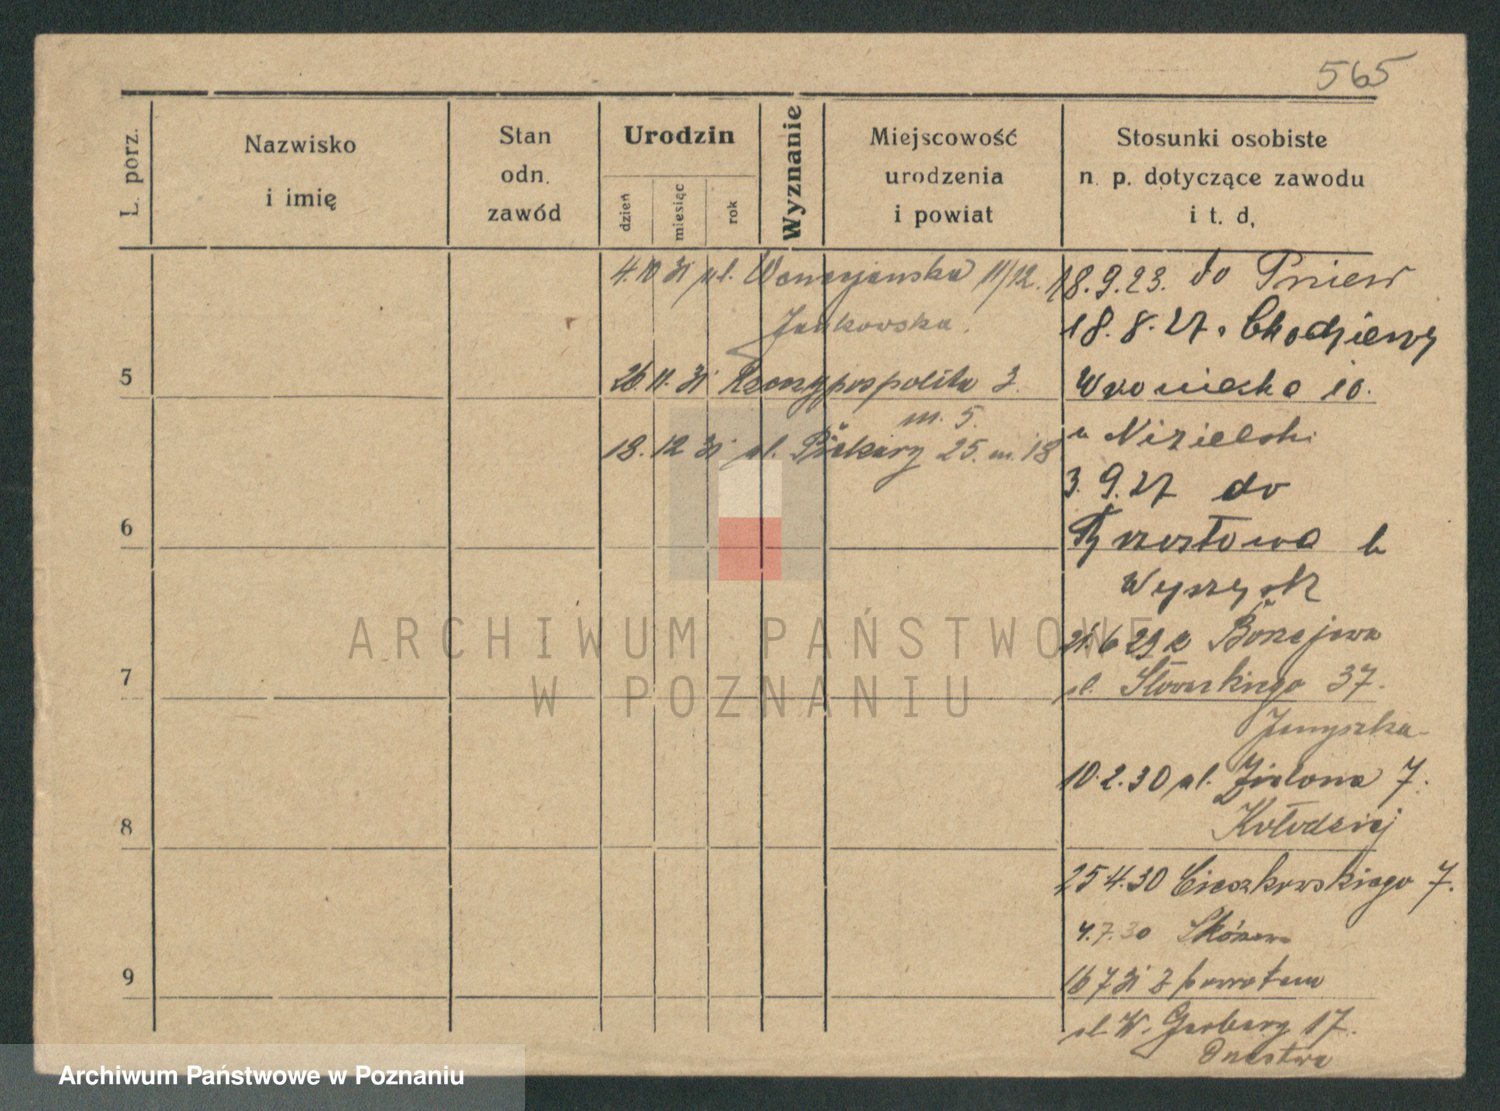 565
L. porz.
Nazwisko
i imię
Stan
odn.
zawód
Urodzin
dzień
miesiąc
rok
Wyznanie
Miejscowość
urodzenia
i powiat
Stosunki osobiste
n. p. dotyczące zawodu
i t. d.
4. 10 31 ul. 11/12.
Jankowska.
5
26 11. 31 Rzeczypospolita 3.
m. 5.
18. 12 31 ul. Piekary 25. m. 18
6
7
8
9
18. 9. 23. do Pniew
18. 8. 27. Chodzieży
Wroniecka 10.
u Nizielski
3. 9. 27 do
b
Wyrzysk
21. 6 29 z
ul. Słowackiego 37.
10. 2. 30 ul. Zielona 7.
Kołodziej
25 4. 30 Cieszkowskiego 7.
4. 7. 30
16 7 31 z powrotem
ul. W. Garbary 17.
ARCHIWUM PAŃSTWOWE
W POZNANIU
Archiwum Państwowe w Poznaniu